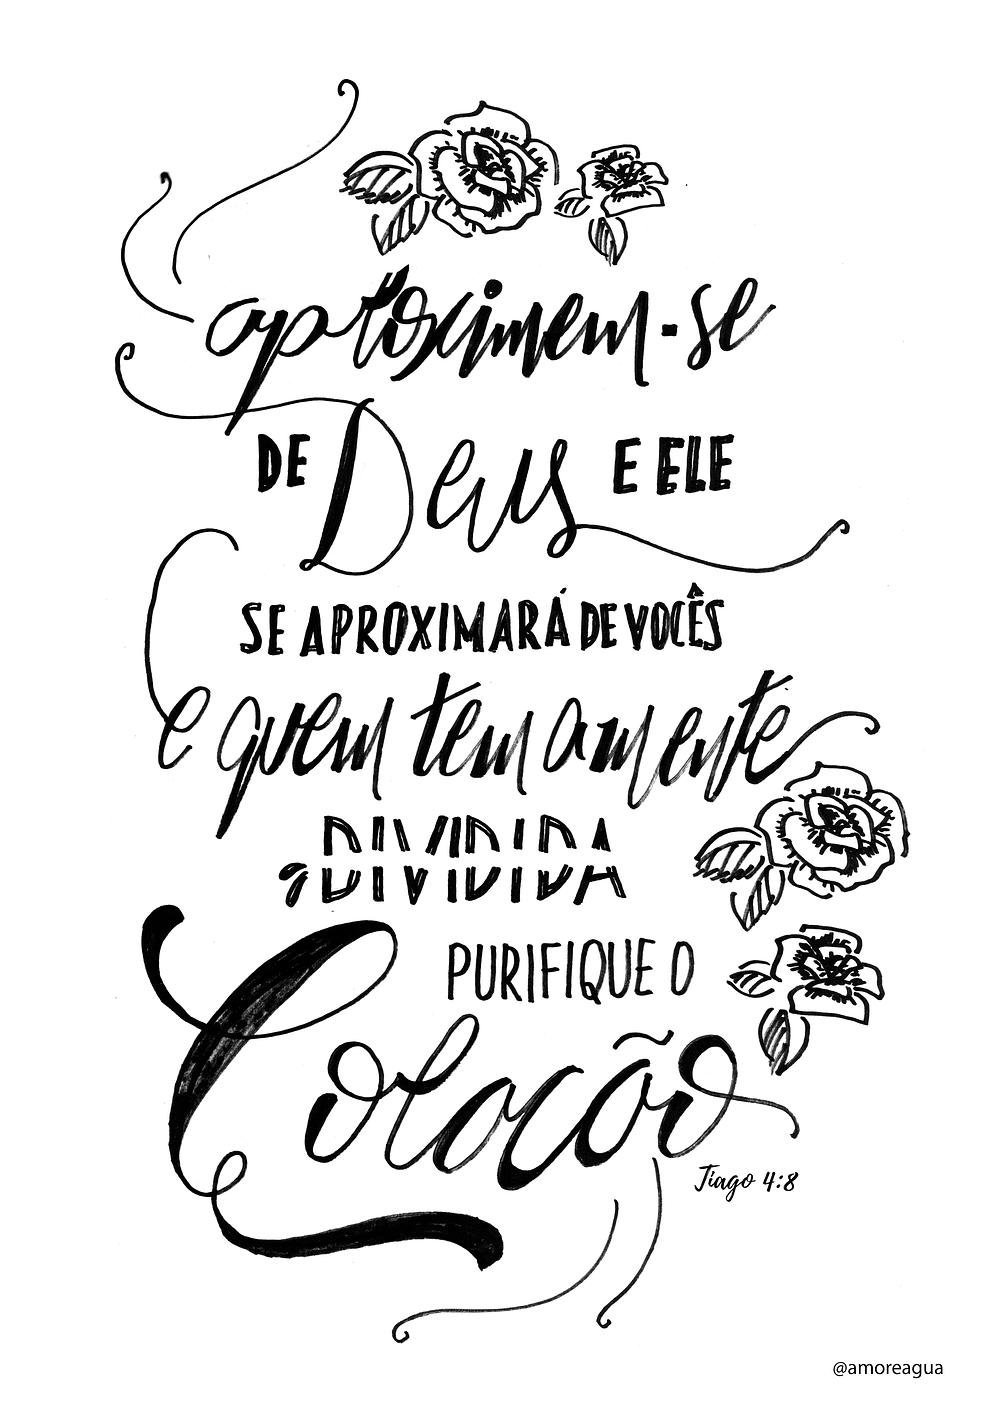 aproximem-se
DE Deus E ELE
SE APROXIMARÁ DE VOCÊS
e quem tem a mente
, DIVIDIDA
PURIFIQUE O
Coração
Tiago 4:8
@amoreagua